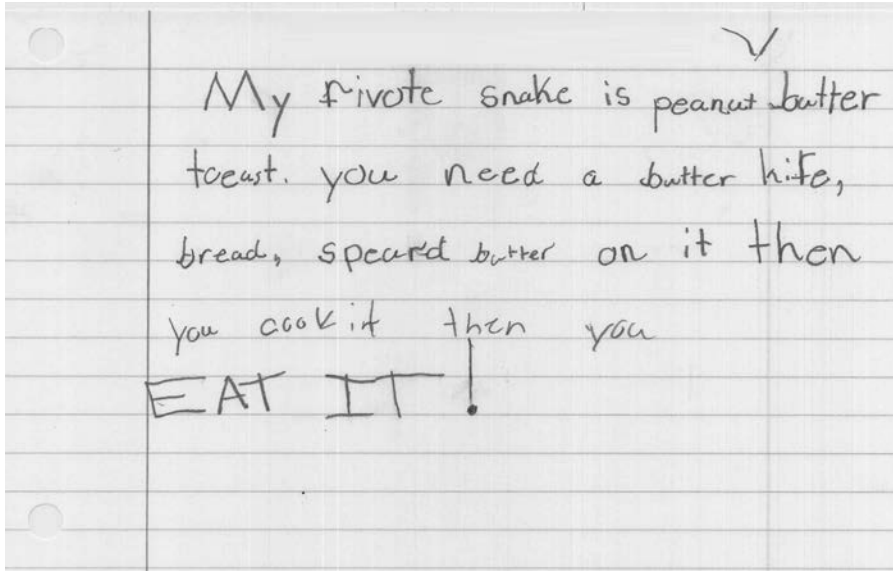 My fivote snake is peanut butter
toeast. you need a butter hife,
bread, speard butter on it then
you cook it then you
EAT IT!